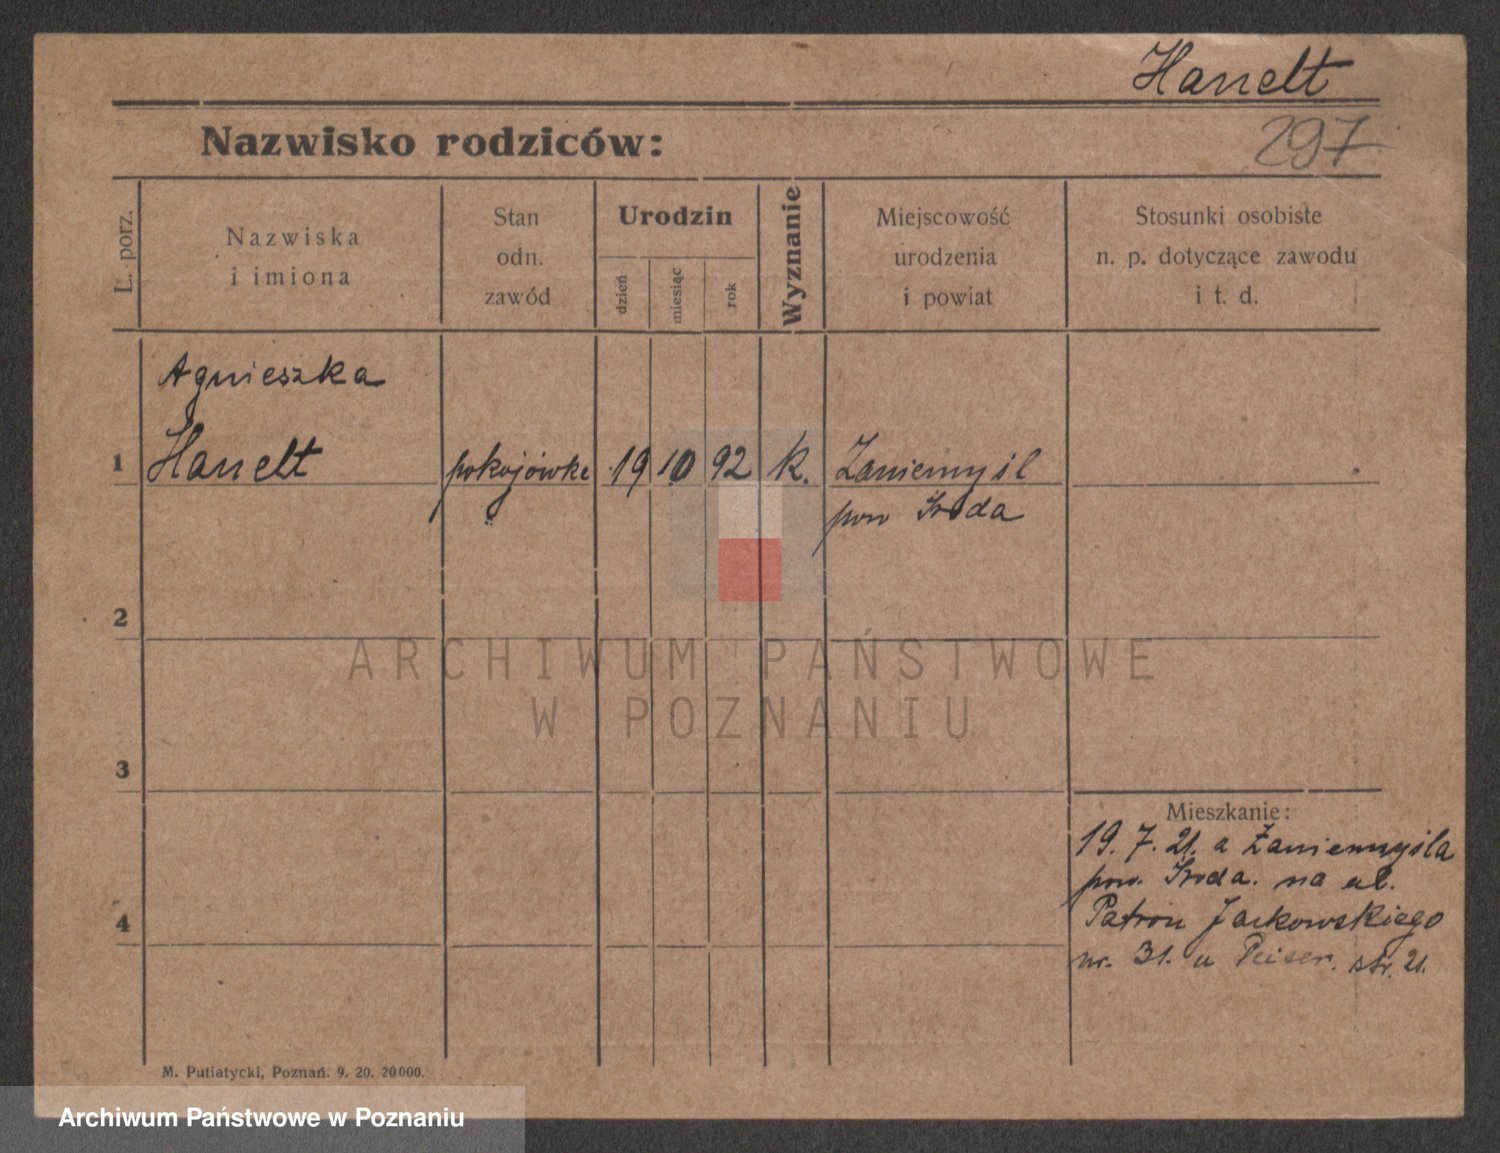 Hanelt
Nazwisko rodziców:
297
L. porz.
Nazwiska
i imiona
Stan
odn.
zawód
Urodzin
dzień
miesiąc
rok
Wyznanie
Miejscowość
urodzenia
i powiat
Stosunki osobiste
n. p. dotyczące zawodu
i t. d.
Agnieszka
1 Hanelt pokojówka 19 10 92 k. Zaniemyśl
pow Środa
2
ARCHIWUM PAŃSTWOWE
W POZNANIU
3
Mieszkanie:
19. 7. 21. z Zaniemyśla
pow. Środa. na ul.
4
Patron Jackowskiego
nr. 31. u Peiser. str. 21.
M. Putiatycki, Poznań. 9. 20. 20000.
Archiwum Państwowe w Poznaniu